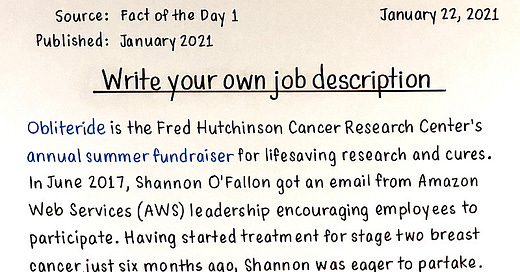 Source: Fact of the Day 1 January 22, 2021
Published: January 2021
Write your own job description
Obliteride is the Fred Hutchinson Cancer Research Center's
annual summer fundraiser for lifesaving research and cures.
In June 2017, Shannon O'Fallon got an email from Amazon
Web Services (AWS) leadership encouraging employees to
participate. Having started treatment for stage two breast
cancer just six months ago, Shannon was eager to partake.